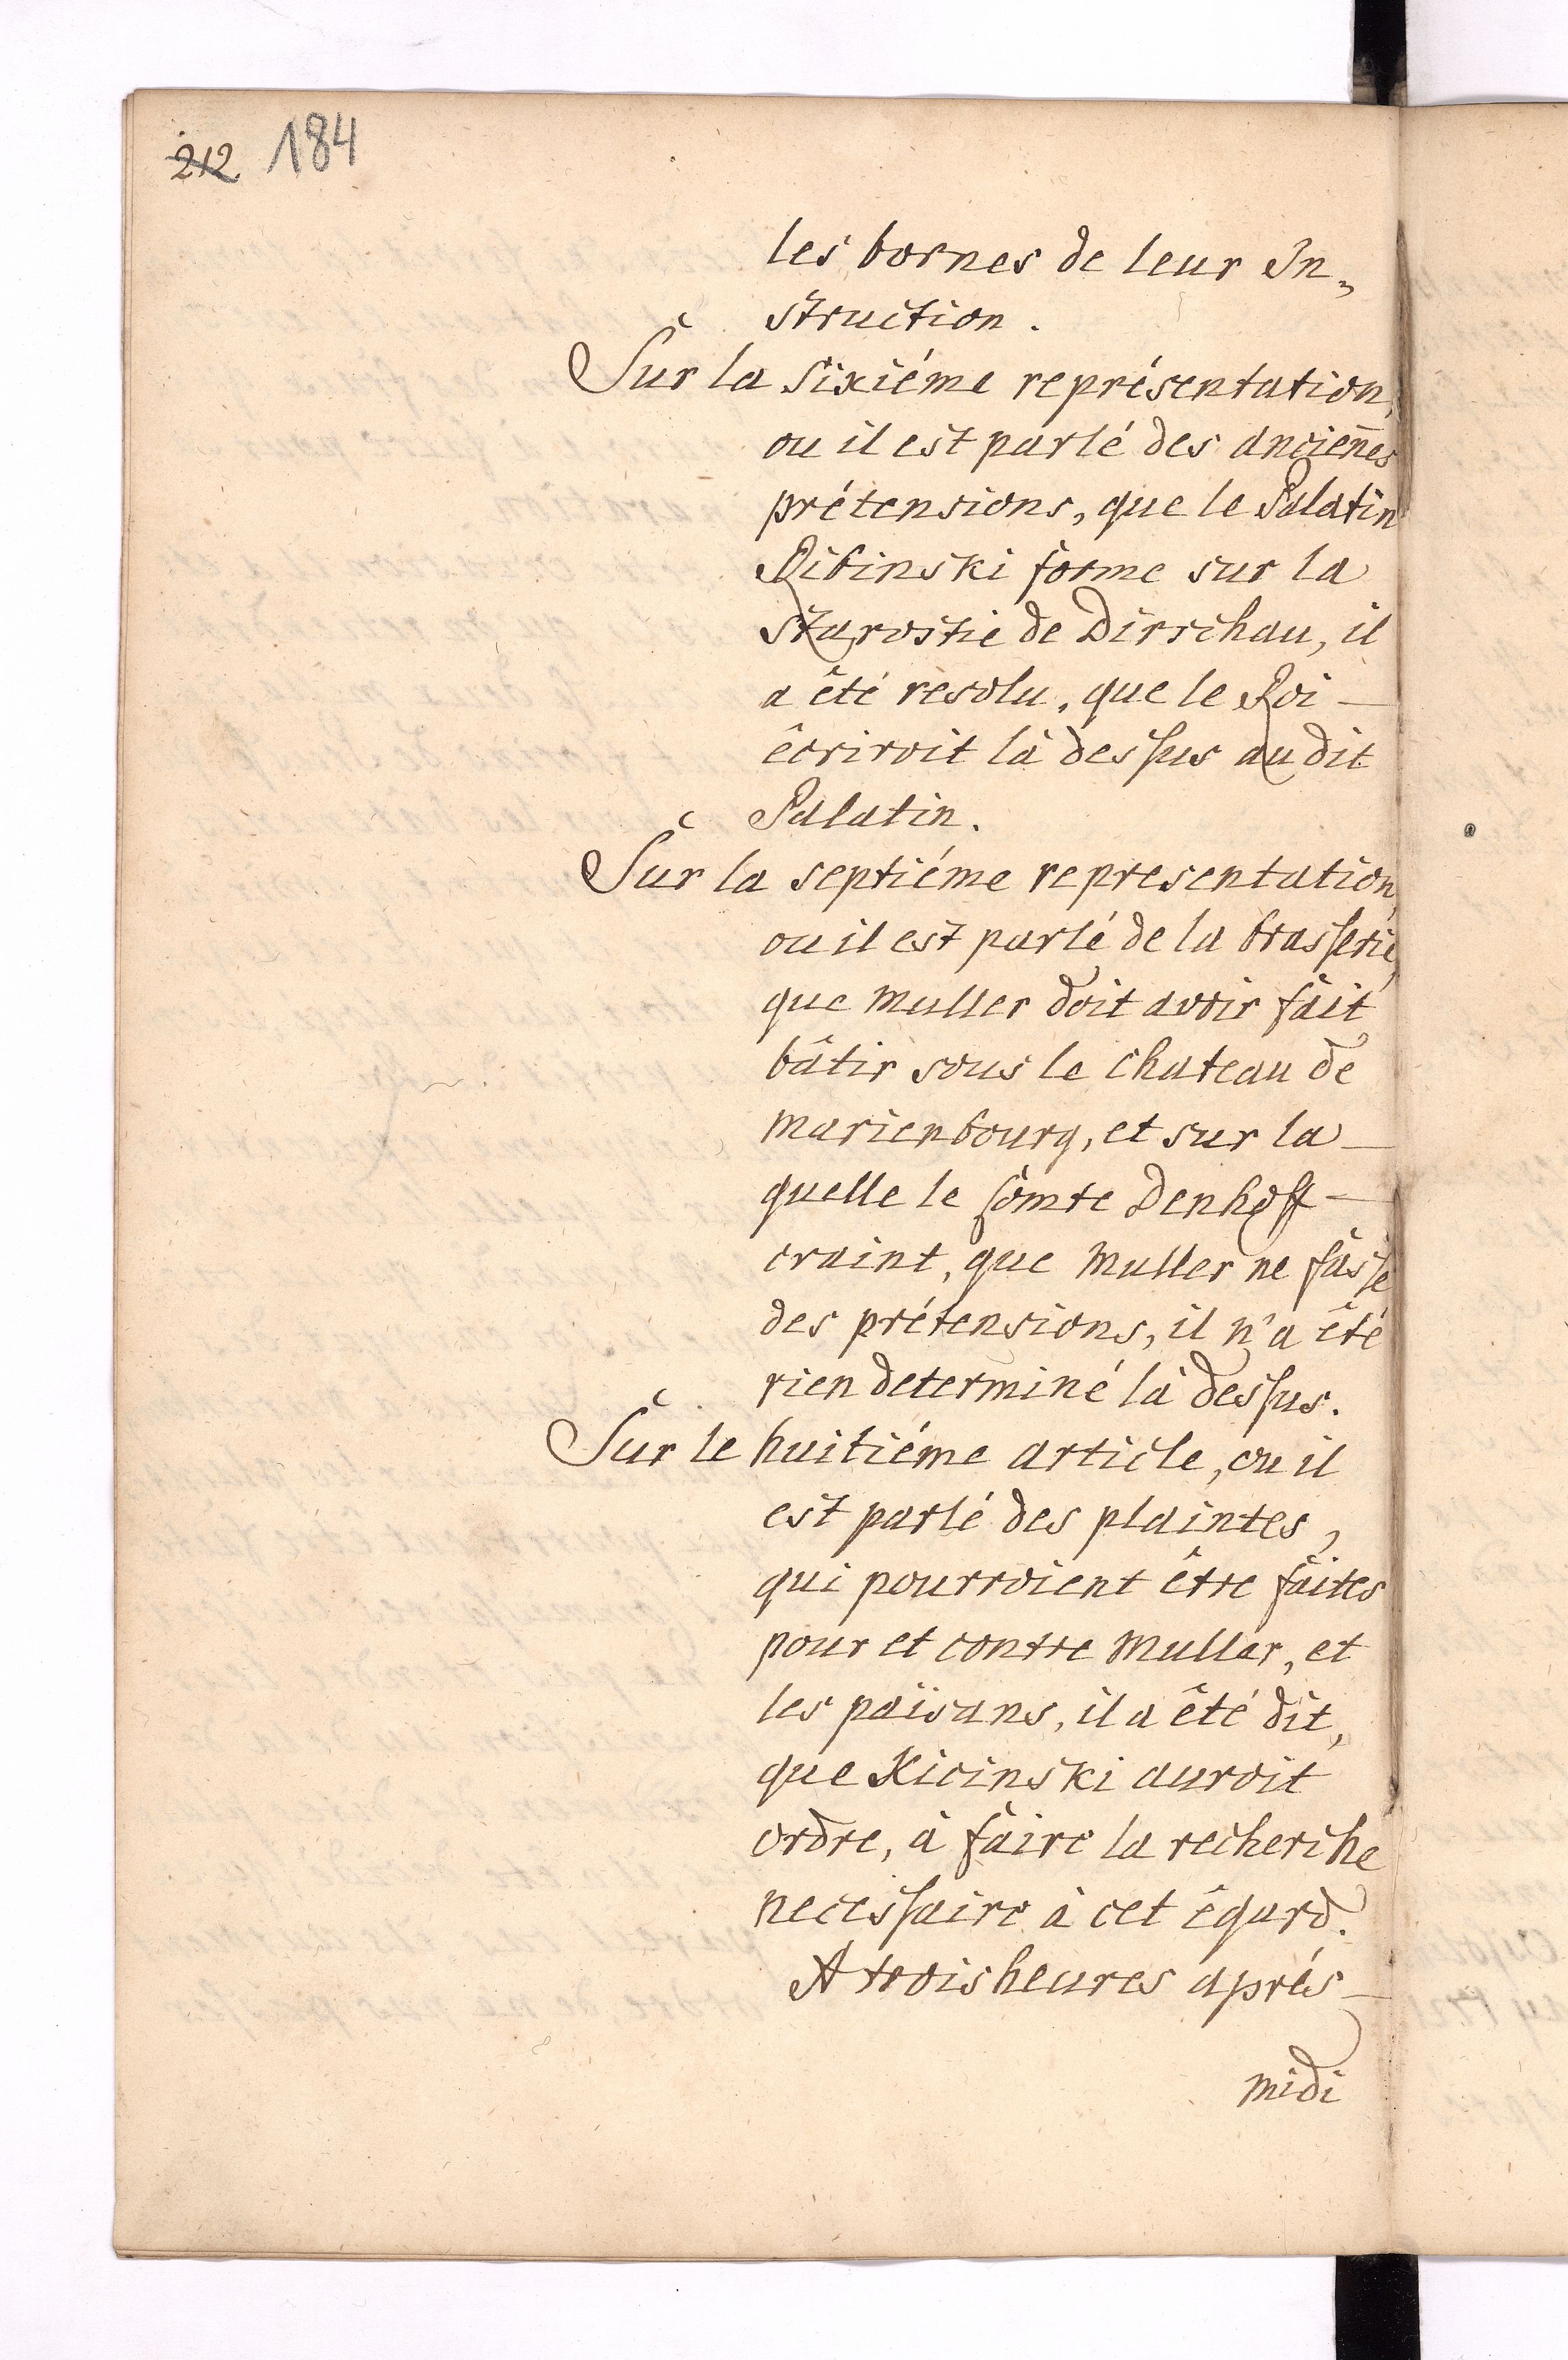 212. 184
les bornes de leur In„
struction.
Sur la sixiéme représentation,
ou il est parlé des ancien̄es
prétensions, que le Palatin
Ribinski forme sur la
Starostie de Dirschau, il
a êté resolu, que le Roi —
êcriroit là dessus au dit
Palatin.
Sur la septiéme representation,
ou il est parlé de la brasserie,
que Muller doit avoir fait
bâtir sous le chateau de
Marienbourg, et sur la —
quelle le Comte Denhoff —
craint, que Muller ne fasse
des prétensions, il n'a êté
rien determiné là dessus.
Sur le huitiéme article, ou il
est parlé des plaintes,
qui pourroient être faites
pour et contre Muller, et
les païsans, il a êté dit,
que Kicinski auroit
ordre, à faire la recherche
necessaire à cet êgard.
A trois heures aprés —
midi